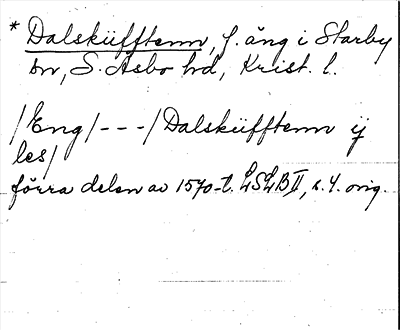 * Dalskiifftenn, f. äng i Starby
sn, S. Åsbo hd, Krist. l.
/Eng/---/Dalskiifftenn ij
les/
förra delen av 1570-t. LSLB II, s. 4. orig.